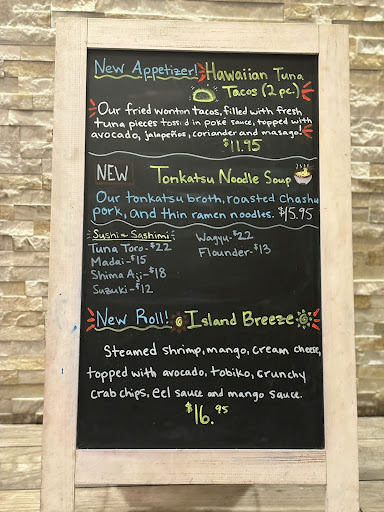 New Appetizer! Hawaiian Tuna
Tacos (2 pc.)
Our fried wonton tacos, filled with fresh
tuna pieces tossed in poke sauce, topped with
avocado, jalapeños, coriander and masago!
$11.95
NEW Tonkatsu Noodle Soup
Our tonkatsu broth, roasted chashu
pork, and thin ramen noodles. $15.95
Sushi ~ Sashimi
Tuna Toro - $22
Madai - $15
Shima Aji - $18
Suzuki - $12
Wagyu - $22
Flounder - $13
New Roll! Island Breeze
Steamed shrimp, mango, cream cheese,
topped with avocado, tobiko, crunchy
crab chips, eel sauce and mango sauce.
$16.95